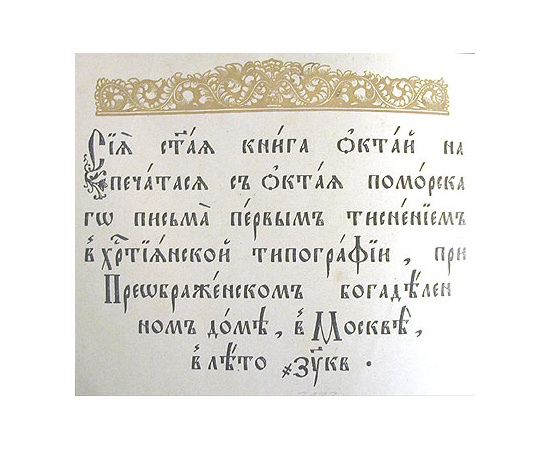 Сїѧ҄ ст҃а́ѧ кни́га ѻ҆кта́й на
печа́тасѧ съ ѻ҆кта́ѧ помо́рска
гѡ письма̀ пе́рвымъ тисне́нїемъ
в̾ хрⷭ҇тїѧ́нской типогра́фїи , при
Преѡбраже́нскомъ богадѣ́лен
номъ до́мѣ , в̾ Москвѣ̀ ,
в̾ лѣ́то ҂зу҃кв .